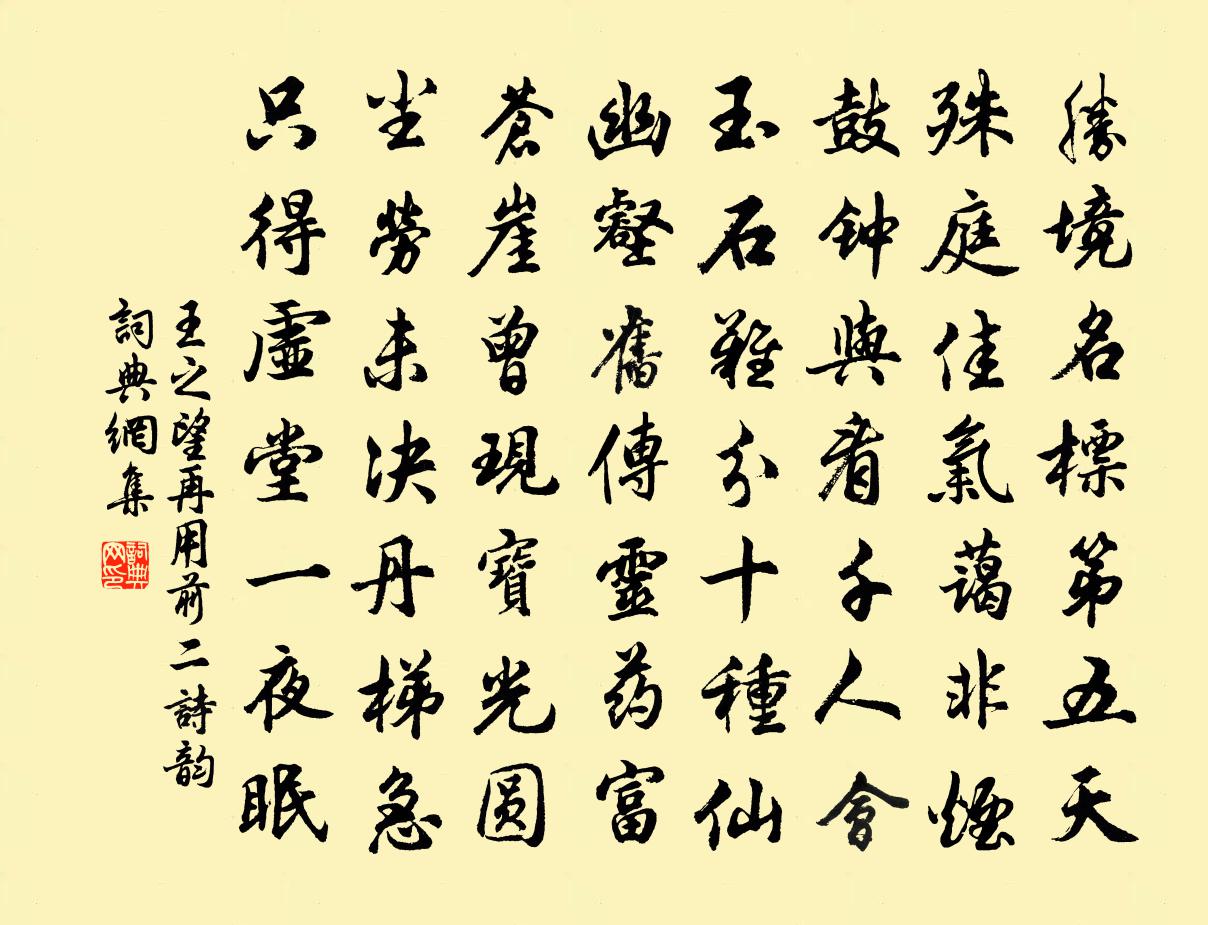 勝境名標第五天
殊庭佳氣藹非煙
鼓钟與看千人會
玉石難分十種仙
幽壑舊傳靈药富
蒼崖曾現寶光圆
尘勞未决丹梯急
只得虛堂一夜眠
王之望再用前二詩韵
詞典網集
詞典网印